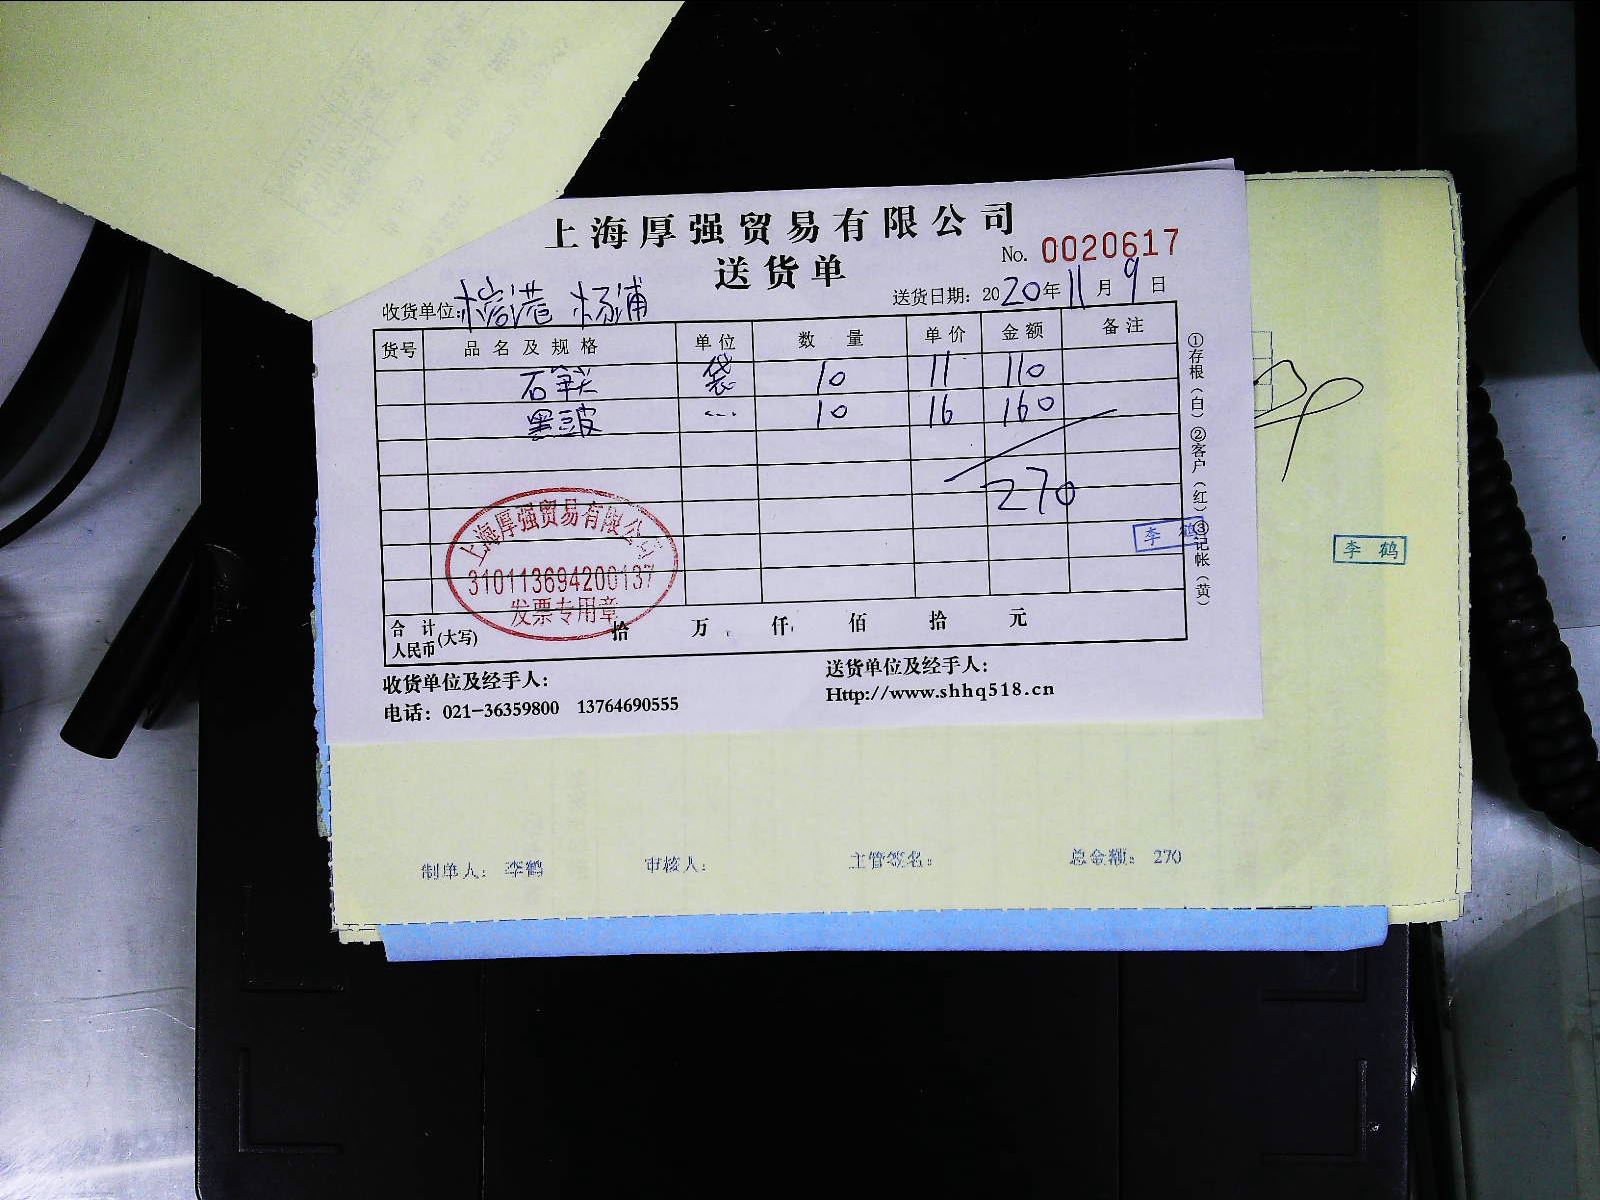 上海厚强贸易有限公司
No. 0020617
送货单
收货单位: 榕港 杨浦
送货日期: 2020年11月9日
货号 品名及规格 单位 数量 单价 金额 备注
石笋尖 袋 10 11 110
黑豆皮 ---- 10 16 160
270
上海厚强贸易有限公司
310113694200137
发票专用章
李鹤
李鹤
合计人民币(大写) 拾 万 仟 佰 拾 元
①存根(白)②客户(红)③记帐(黄)
收货单位及经手人:
送货单位及经手人:
电话: 021-36359800 13764690555
Http://www.shhq518.cn
制单人: 李鹤 审核人: 主管签名: 总金额: 270